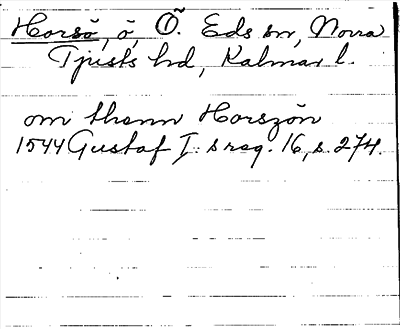 Horsö, ö, Ö. Eds sn, Norra
Tjusts hd, Kalmar l.
om thenn Horszön
1544 Gustaf I:s reg. 16, s. 274.